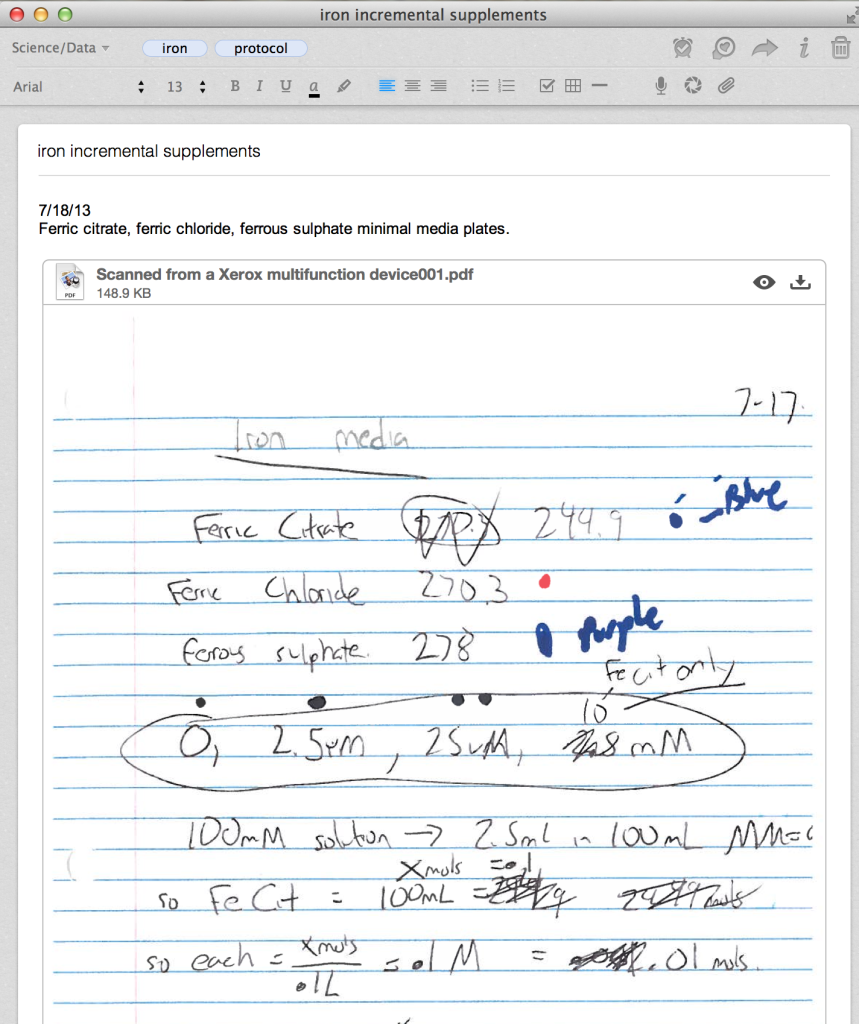 iron incremental supplements
Science/Data iron protocol
Arial 13 B I U a
iron incremental supplements
7/18/13
Ferric citrate, ferric chloride, ferrous sulphate minimal media plates.
Scanned from a Xerox multifunction device001.pdf
PDF 148.9 KB
7-17.
Iron media
Ferric Citrate 244.9 Blue
Ferric Chloride 270.3
ferrous sulphate. 278 Purple
Fe Cit only
10
0, 2.5uM, 25uM, mM
100mM solution → 2.5mL in 100mL MM=
X mols = .1
so Fe Cit = 100mL =
so each = X mols = .1 M = .01 mols.
.1L